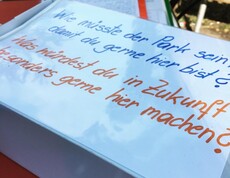 Wie müsste der Park sein,
damit du gerne hier bist?
Was würdest du in Zukunft
besonders gerne hier machen?